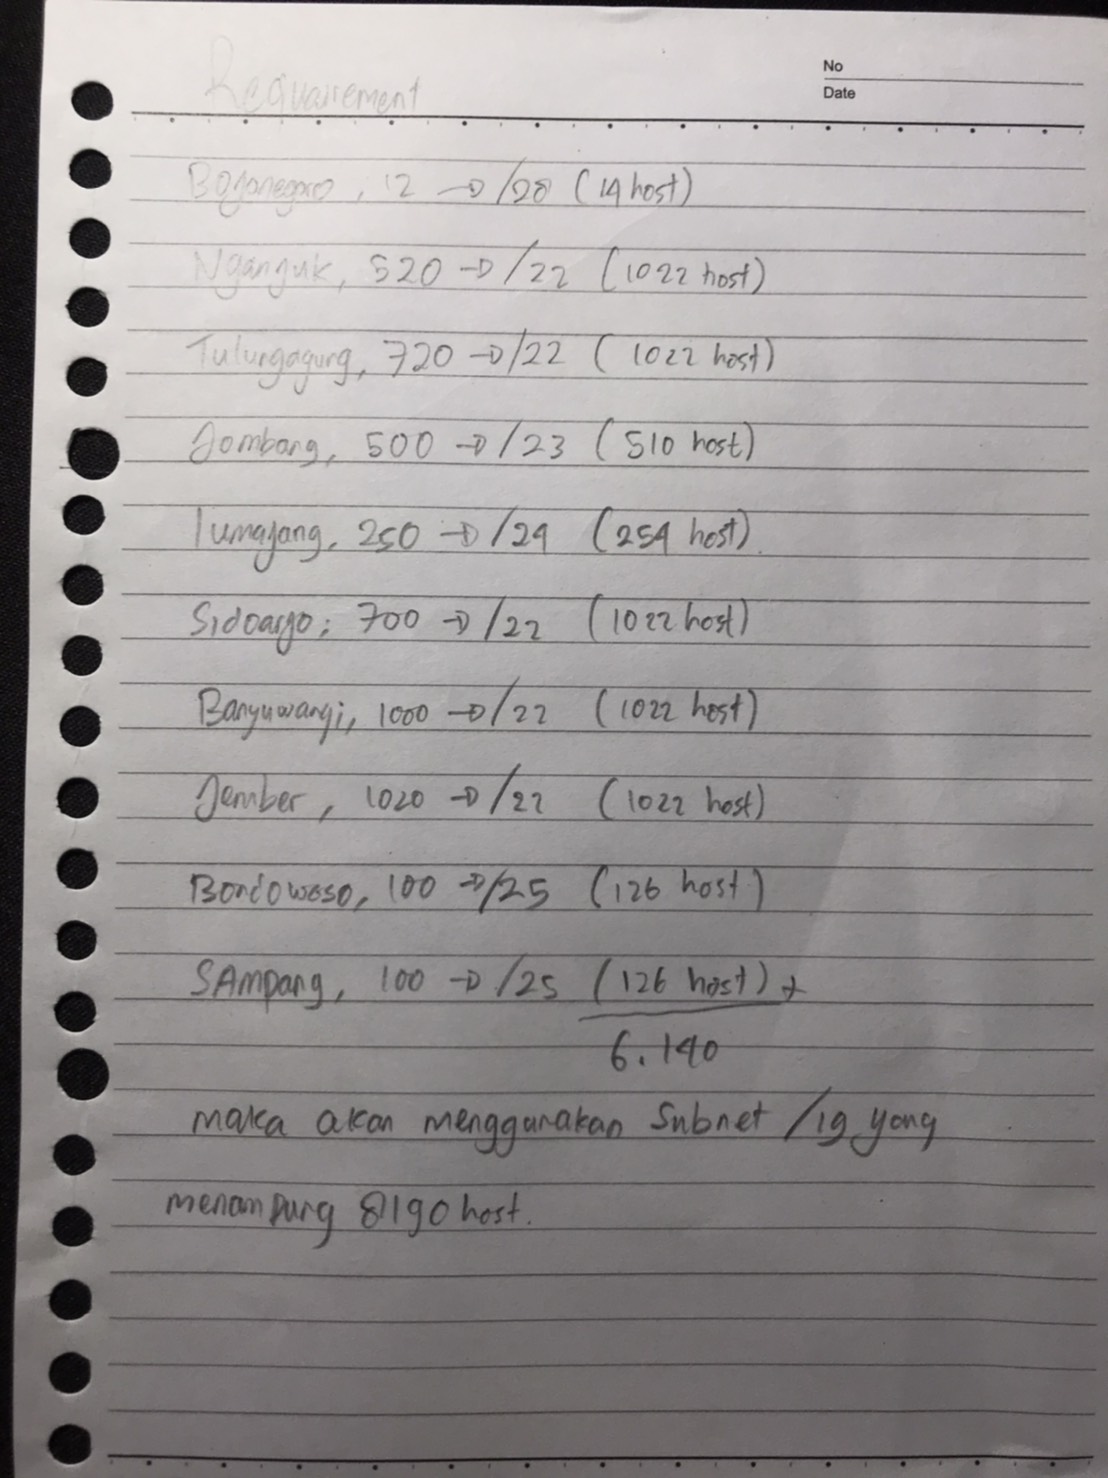 No
Date
Requairement
Bojonegoro, 12 → /28 (14 host)
Nganguk, 520 → /22 (1022 host)
Tulungagung, 720 → /22 (1022 host)
Jombang, 500 → /23 (510 host)
lumajang, 250 → /24 (254 host)
Sidoarjo, 700 → /22 (1022 host)
Banyuwangi, 1000 → /22 (1022 host)
Jember, 1020 → /22 (1022 host)
Bondowoso, 100 → /25 (126 host)
SAmpang, 100 → /25 (126 host) +
6.140
maka akan menggunakan Subnet /19 yang
menampung 8190 host.